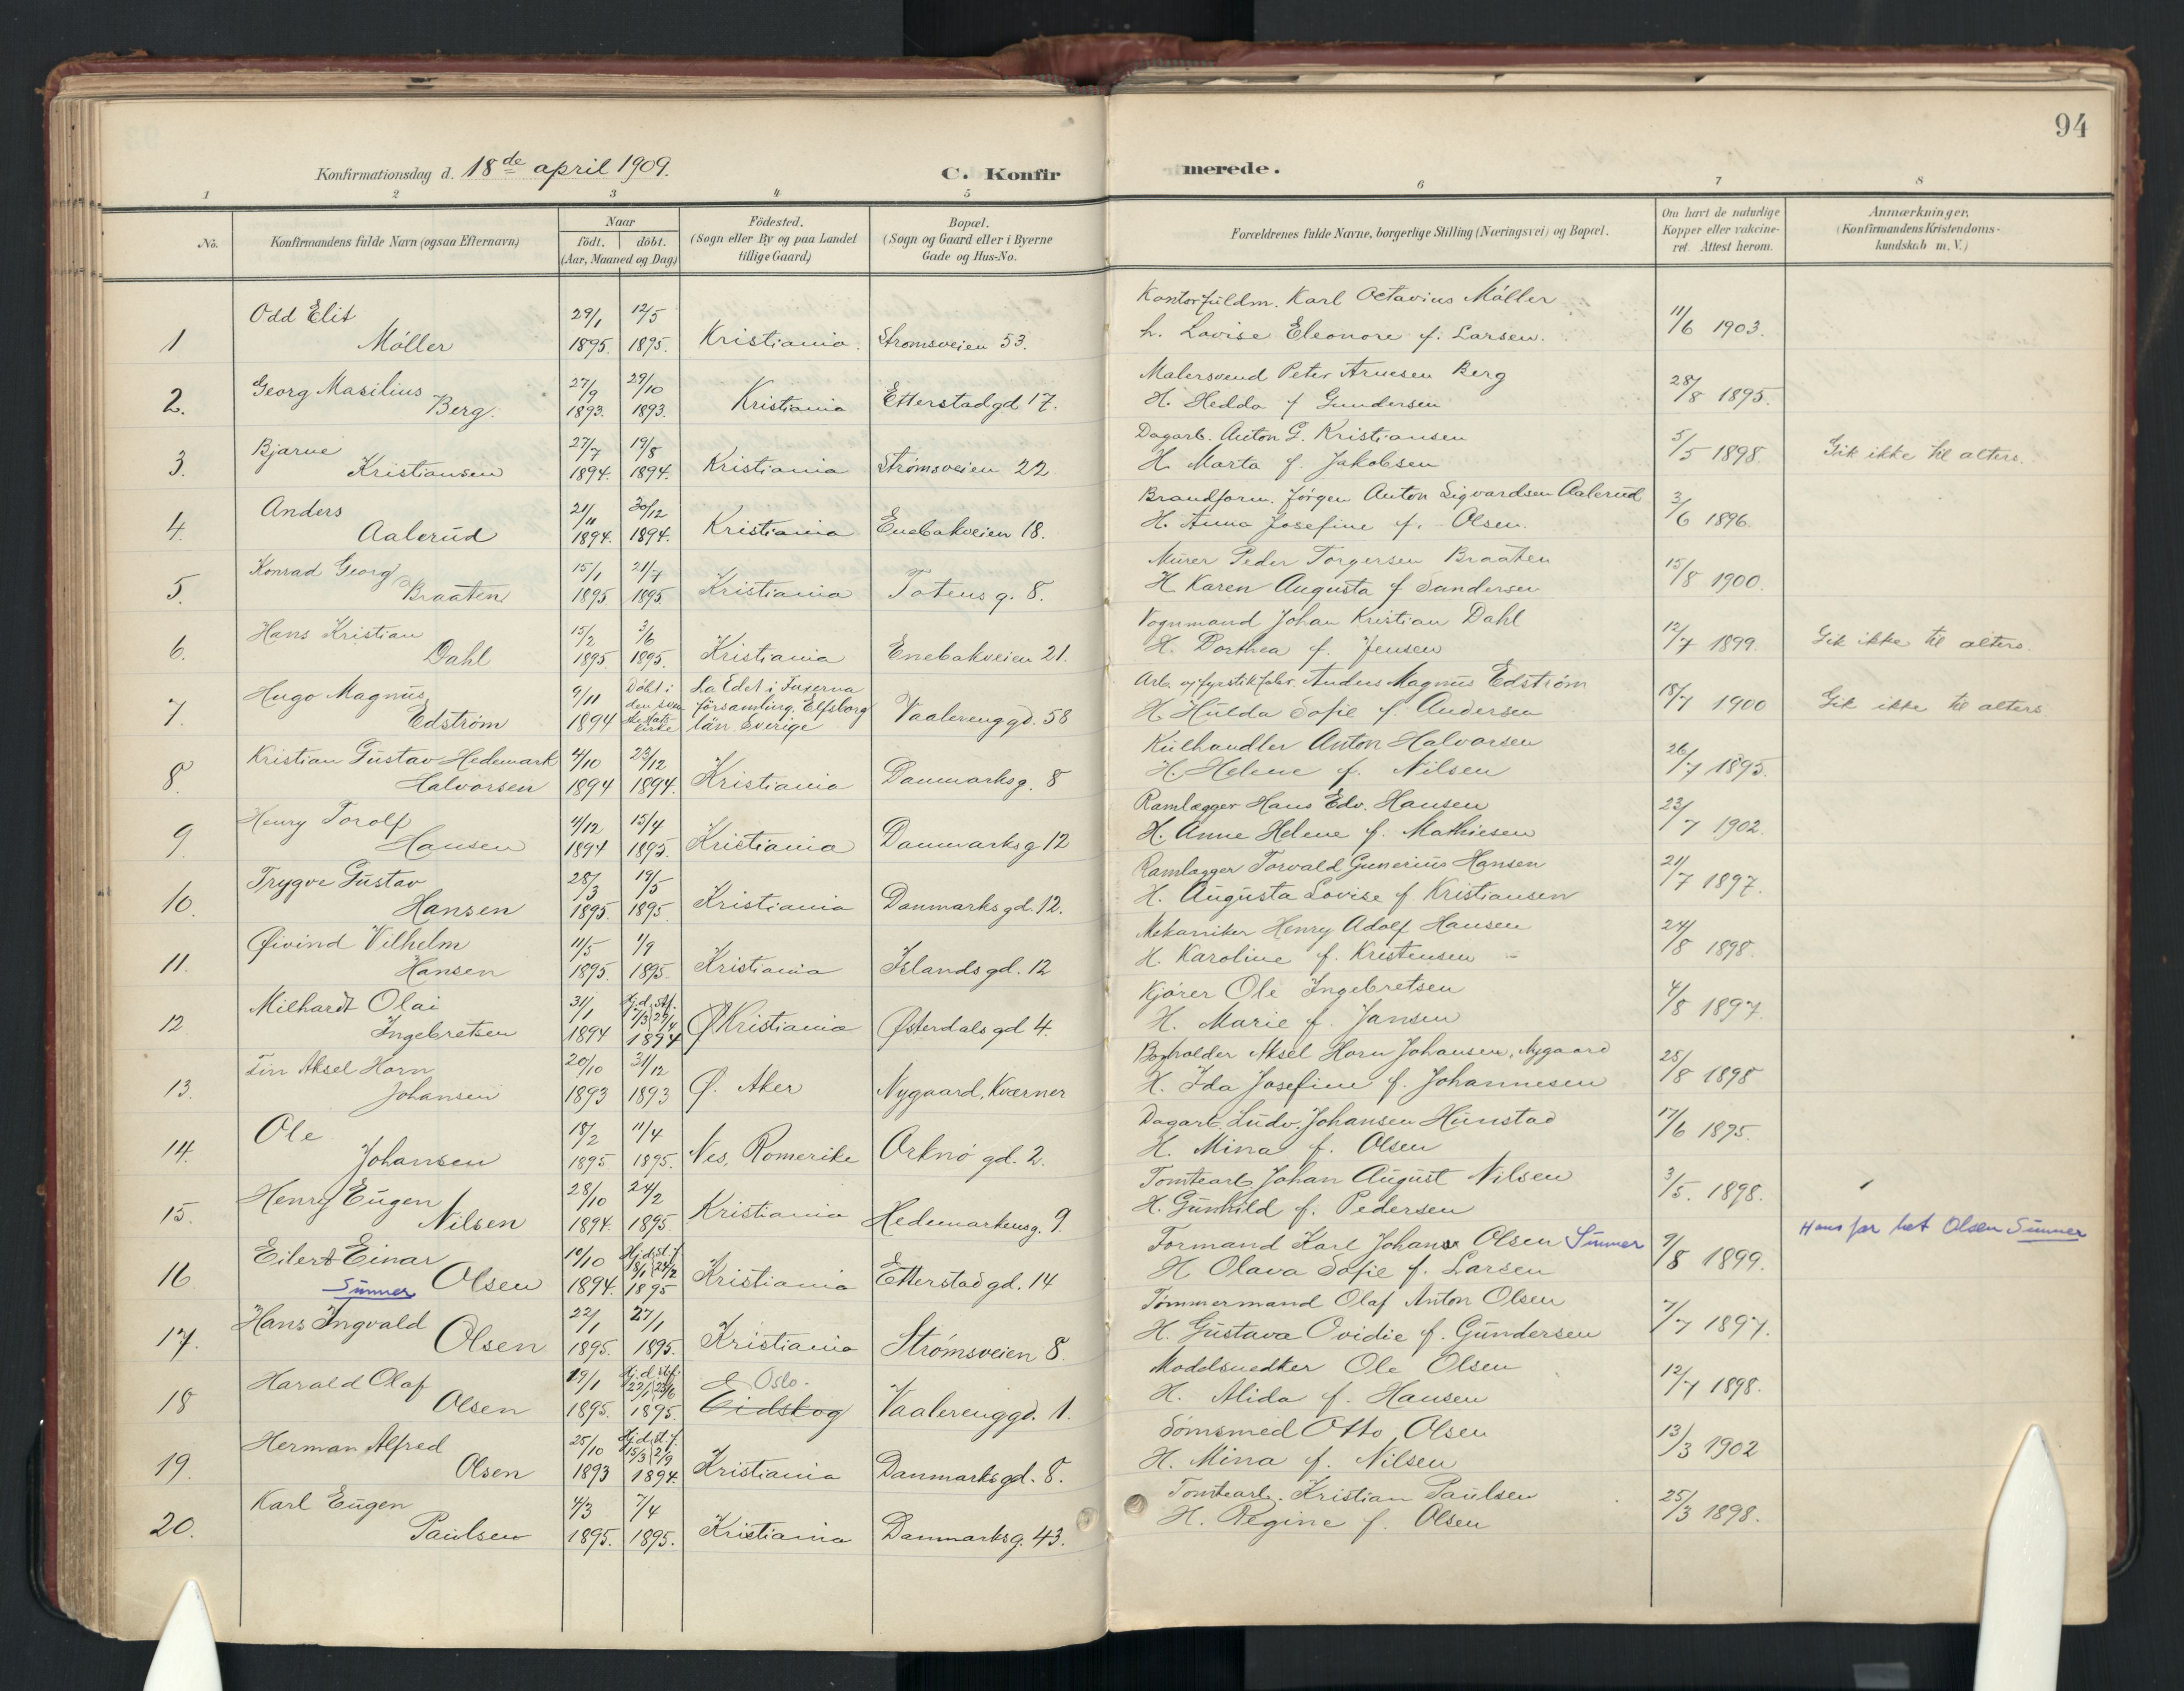 94
Konfirmationsdag d. 18de april 1909.
C. Konfirmerede.
1 2 3 4 5 6 7 8
No.
Konfirmandens fulde Navn (ogsaa Efternavn)
Naar
födt. döbt.
(Aar, Maaned og Dag)
Födested.
(Sogn eller By og paa Landet
tillige Gaard)
Bopæl.
(Sogn og Gaard eller i Byerne
Gade og Hus-No.
Forældrenes fulde Navne, borgerlige Stilling (Næringsvei) og Bopæl.
Om havt de naturlige
Kopper eller vakcine-
ret. Attest herom.
Anmærkninger.
(Konfirmandens Kristendoms-
kundskab m. V.)
1 Odd Elit 29/1 12/5 Kontorfuldm. Karl Octavius Möller
Möller 1895. 1895. Kristiania. Strømsveien 53. h. Lovise Eleonore f. Larsen. 11/6 1903.
2. Georg Masilius 27/9 29/10 Malersvend Peter Arnesen Berg
Berg. 1893. 1893. Kristiania Etterstadgd 17. H. Hedda f Gundersen 28/8 1895.
3. Bjarne 27/7 19/8 Dagarb. Anton G. Kristiansen
Kristiansen 1894. 1894. Kristiania Strømsveien 22 H. Marta f. Jakobsen 5/5 1898. Gik ikke til alters.
4. Anders 21/11 30/12 Brandform. Jörgen Anton Sigvardsen Aalerud
Aalerud 1894. 1894. Kristiania Enebakveien 18. H. Anna Josefine f. Olsen. 3/6 1896.
5. Konrad Georg 15/1 21/7 Murer Peder Torgersen Braaten
Braaten 1895 1895. Kristiania Totens g. 8. H Karen Augusta f Sandersen 15/8 1900.
6. Hans Kristian 15/2 3/6 Vognmand Johan Kristian Dahl
Dahl 1895. 1895. Kristiania Enebakveien 21. H. Dorthea f. Jensen 12/7 1899. Gik ikke til alters.
7. Hugo Magnus 9/11 Döbt i La Edet i Fuxerna Anders Magnus Edström
Edström 1894 församling. Elfsborg län Sverige Vaalerenggd. 58 H. Hulda Sofie f. Andersen 18/7 1900 Gik ikke til alters.
8. Kristian Gustav Hedemark 4/10 23/12 Kulhandler Anton Halvorsen
Halvorsen 1894 1894. Kristiania Danmarksg. 8 H. Helene f. Nilsen 26/7 1895.
9. Henry Torolf 4/12 15/4 Ramlægger Hans Edv. Hansen
Hansen 1894 1895. Kristiania Danmarksg 12 H. Anne Helene f. Mathiesen 23/7 1902.
10. Trygve Gustav 28/3 19/5 Ramlægger Torvald Gunerius Hansen
Hansen 1895. 1895. Kristiania Danmarksgd. 12. H. Augusta Lovise f Kristiansen 21/7 1897.
11. Øivind Vilhelm 11/5 1/9 Mekaniker Henry Adolf Hansen
Hansen 1895. 1895. Kristiania Islandsgd. 12 H. Karoline f. Kristensen 24/8 1898.
12 Milhardt Olai 31/1 Hj.d. Stf. 7/3 29/4 Kjører Ole Ingebretsen
Ingebretsen 1894 1894 Ø Kristiania Østerdalsgd 4. H. Marie f. Jansen 4/8 1897.
13. Finn Aksel Horn 20/10 31/12 Bogholder Aksel Horn Johansen, Nygaard
Johansen 1893 1893 Ø. Aker Nygaard, Kværner H. Ida Josefine f. Johannesen 25/8 1898
14. Ole 18/2 11/4 Dagarb. Ludv. Johansen Hunstad
Johansen 1895. 1895. Nes, Romerike Orknø gd. 2. H. Mina f. Olsen 17/6 1895.
15. Henry Eugen 28/10 24/2 Tomtearb Johan August Nilsen
Nilsen 1894. 1895 Kristiania Hedemarkensg. 9. H. Gunhild f. Pedersen 3/5. 1898.
16. Eilert Einar 10/10 Hj.d.st.f. 8/1 24/2 Formand Karl Johan Olsen Sunner Hans far het Olsen Sunner
Sunner Olsen 1894. 1895 Kristiania Etterstadgd. 14 H Olava Sofie f. Larsen 9/8 1899.
17. Hans Ingvald 22/1 27/1 Tømmermand Olaf Anton Olsen
Olsen 1895. 1895. Kristiania Strømsveien 8. H. Gustava Ovidie f. Gundersen 7/7 1897.
18 Harald Olaf 19/1 Hj.d.stf. 22/1 23/6 Oslo. Modelsnedker Ole Olsen
Olsen 1895. 1895. Eidskog Vaalerenggd. 1. H. Alida f. Hansen 12/7 1898.
19. Herman Alfred 25/10 Hj.d.st.f. 15/3 2/9 Sömsmed Otto Olsen
Olsen 1893 1894. Kristiania Danmarksgd. 8. H. Mina f. Nilsen 13/3 1902
20. Karl Eugen 4/3 7/4 Tomtearb. Kristian Paulsen
Paulsen 1895. 1895. Kristiania Danmarksg. 43. H. Regine f. Olsen 25/3 1898.